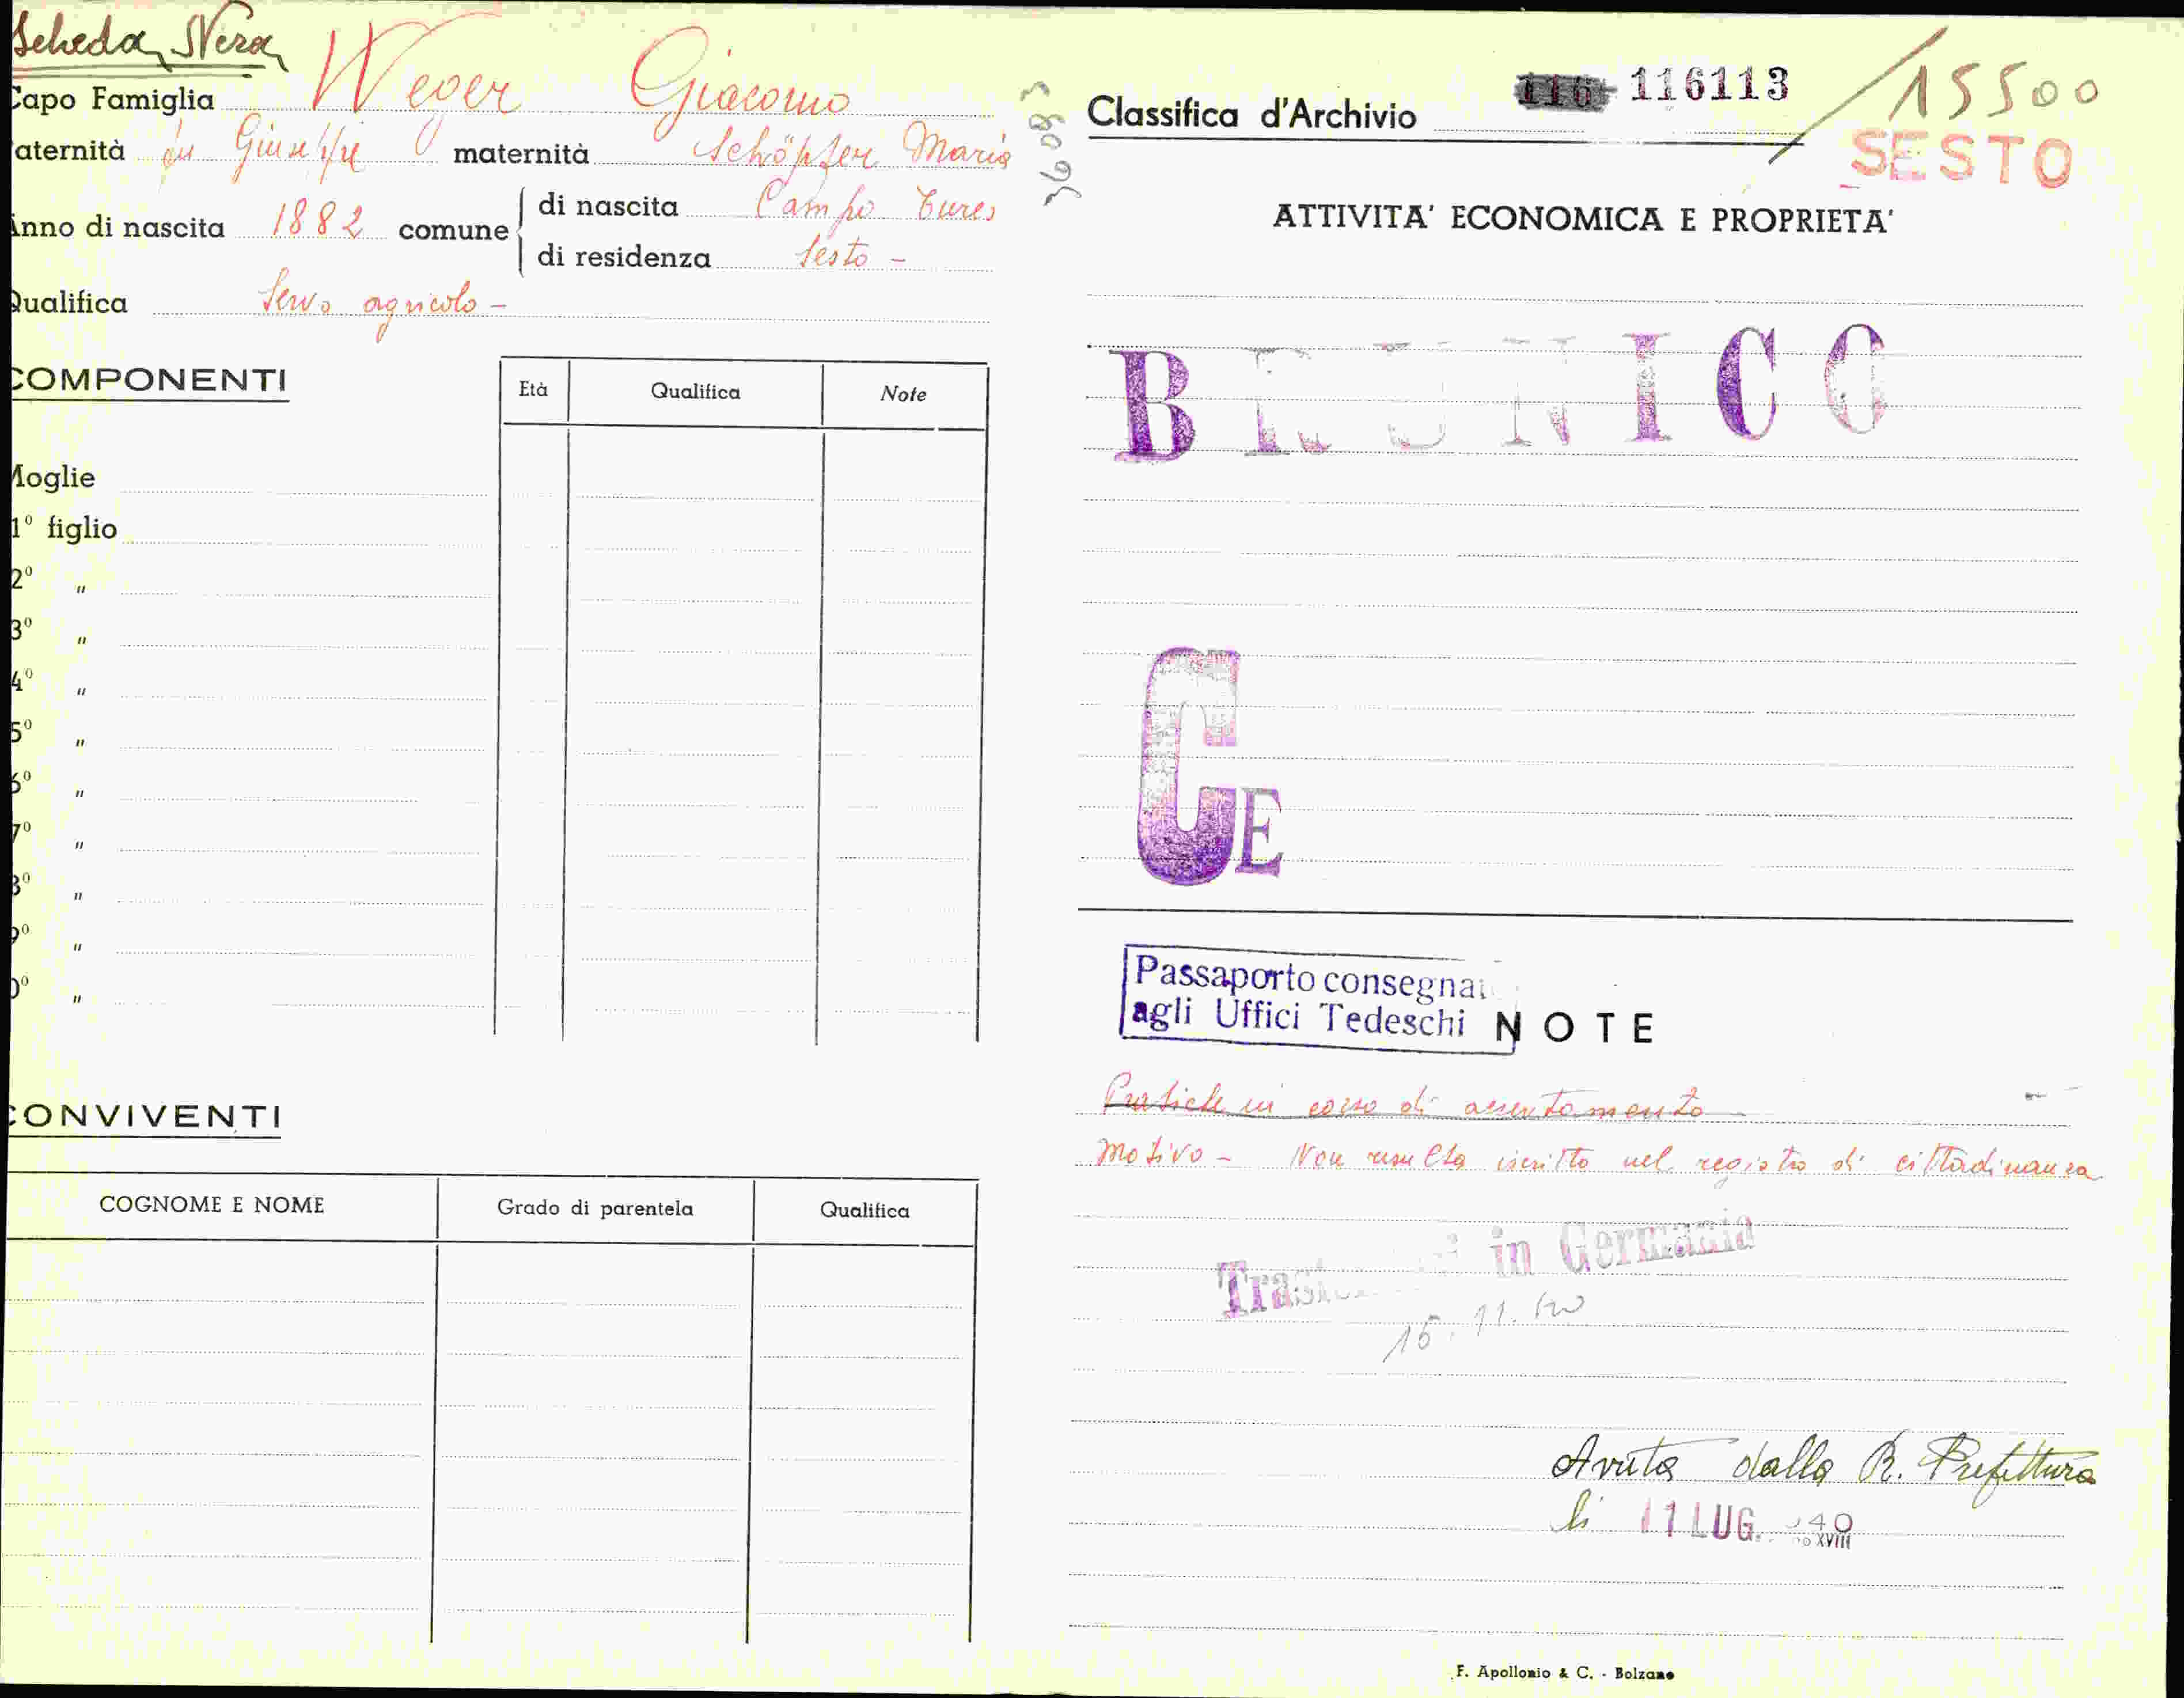 Scheda Nera
Capo Famiglia Weger Giacomo
aternità fu Giuseppe maternità Schöpfer Maria
Anno di nascita 1882 comune di nascita Campo Tures
di residenza Sesto -
Qualifica Servo agricolo -
COMPONENTI
Età Qualifica Note
Moglie
1° figlio
2° "
3° "
4° "
5° "
6° "
7° "
8° "
9° "
0° "
CONVIVENTI
COGNOME E NOME Grado di parentela Qualifica
Classifica d'Archivio 116 116113 / 15500
SESTO
ATTIVITA' ECONOMICA E PROPRIETA'
BRUNICO
GE
Passaporto consegnat
agli Uffici Tedeschi
NOTE
Pratiche in corso di accertamento -
Motivo - Non risulta iscritto nel registro di cittadinanza
in Germania
15.11.40
Avuta dalla R. Prefettura
li 11 LUG. 40
XVIII
F. Apollonio & C. - Bolzano